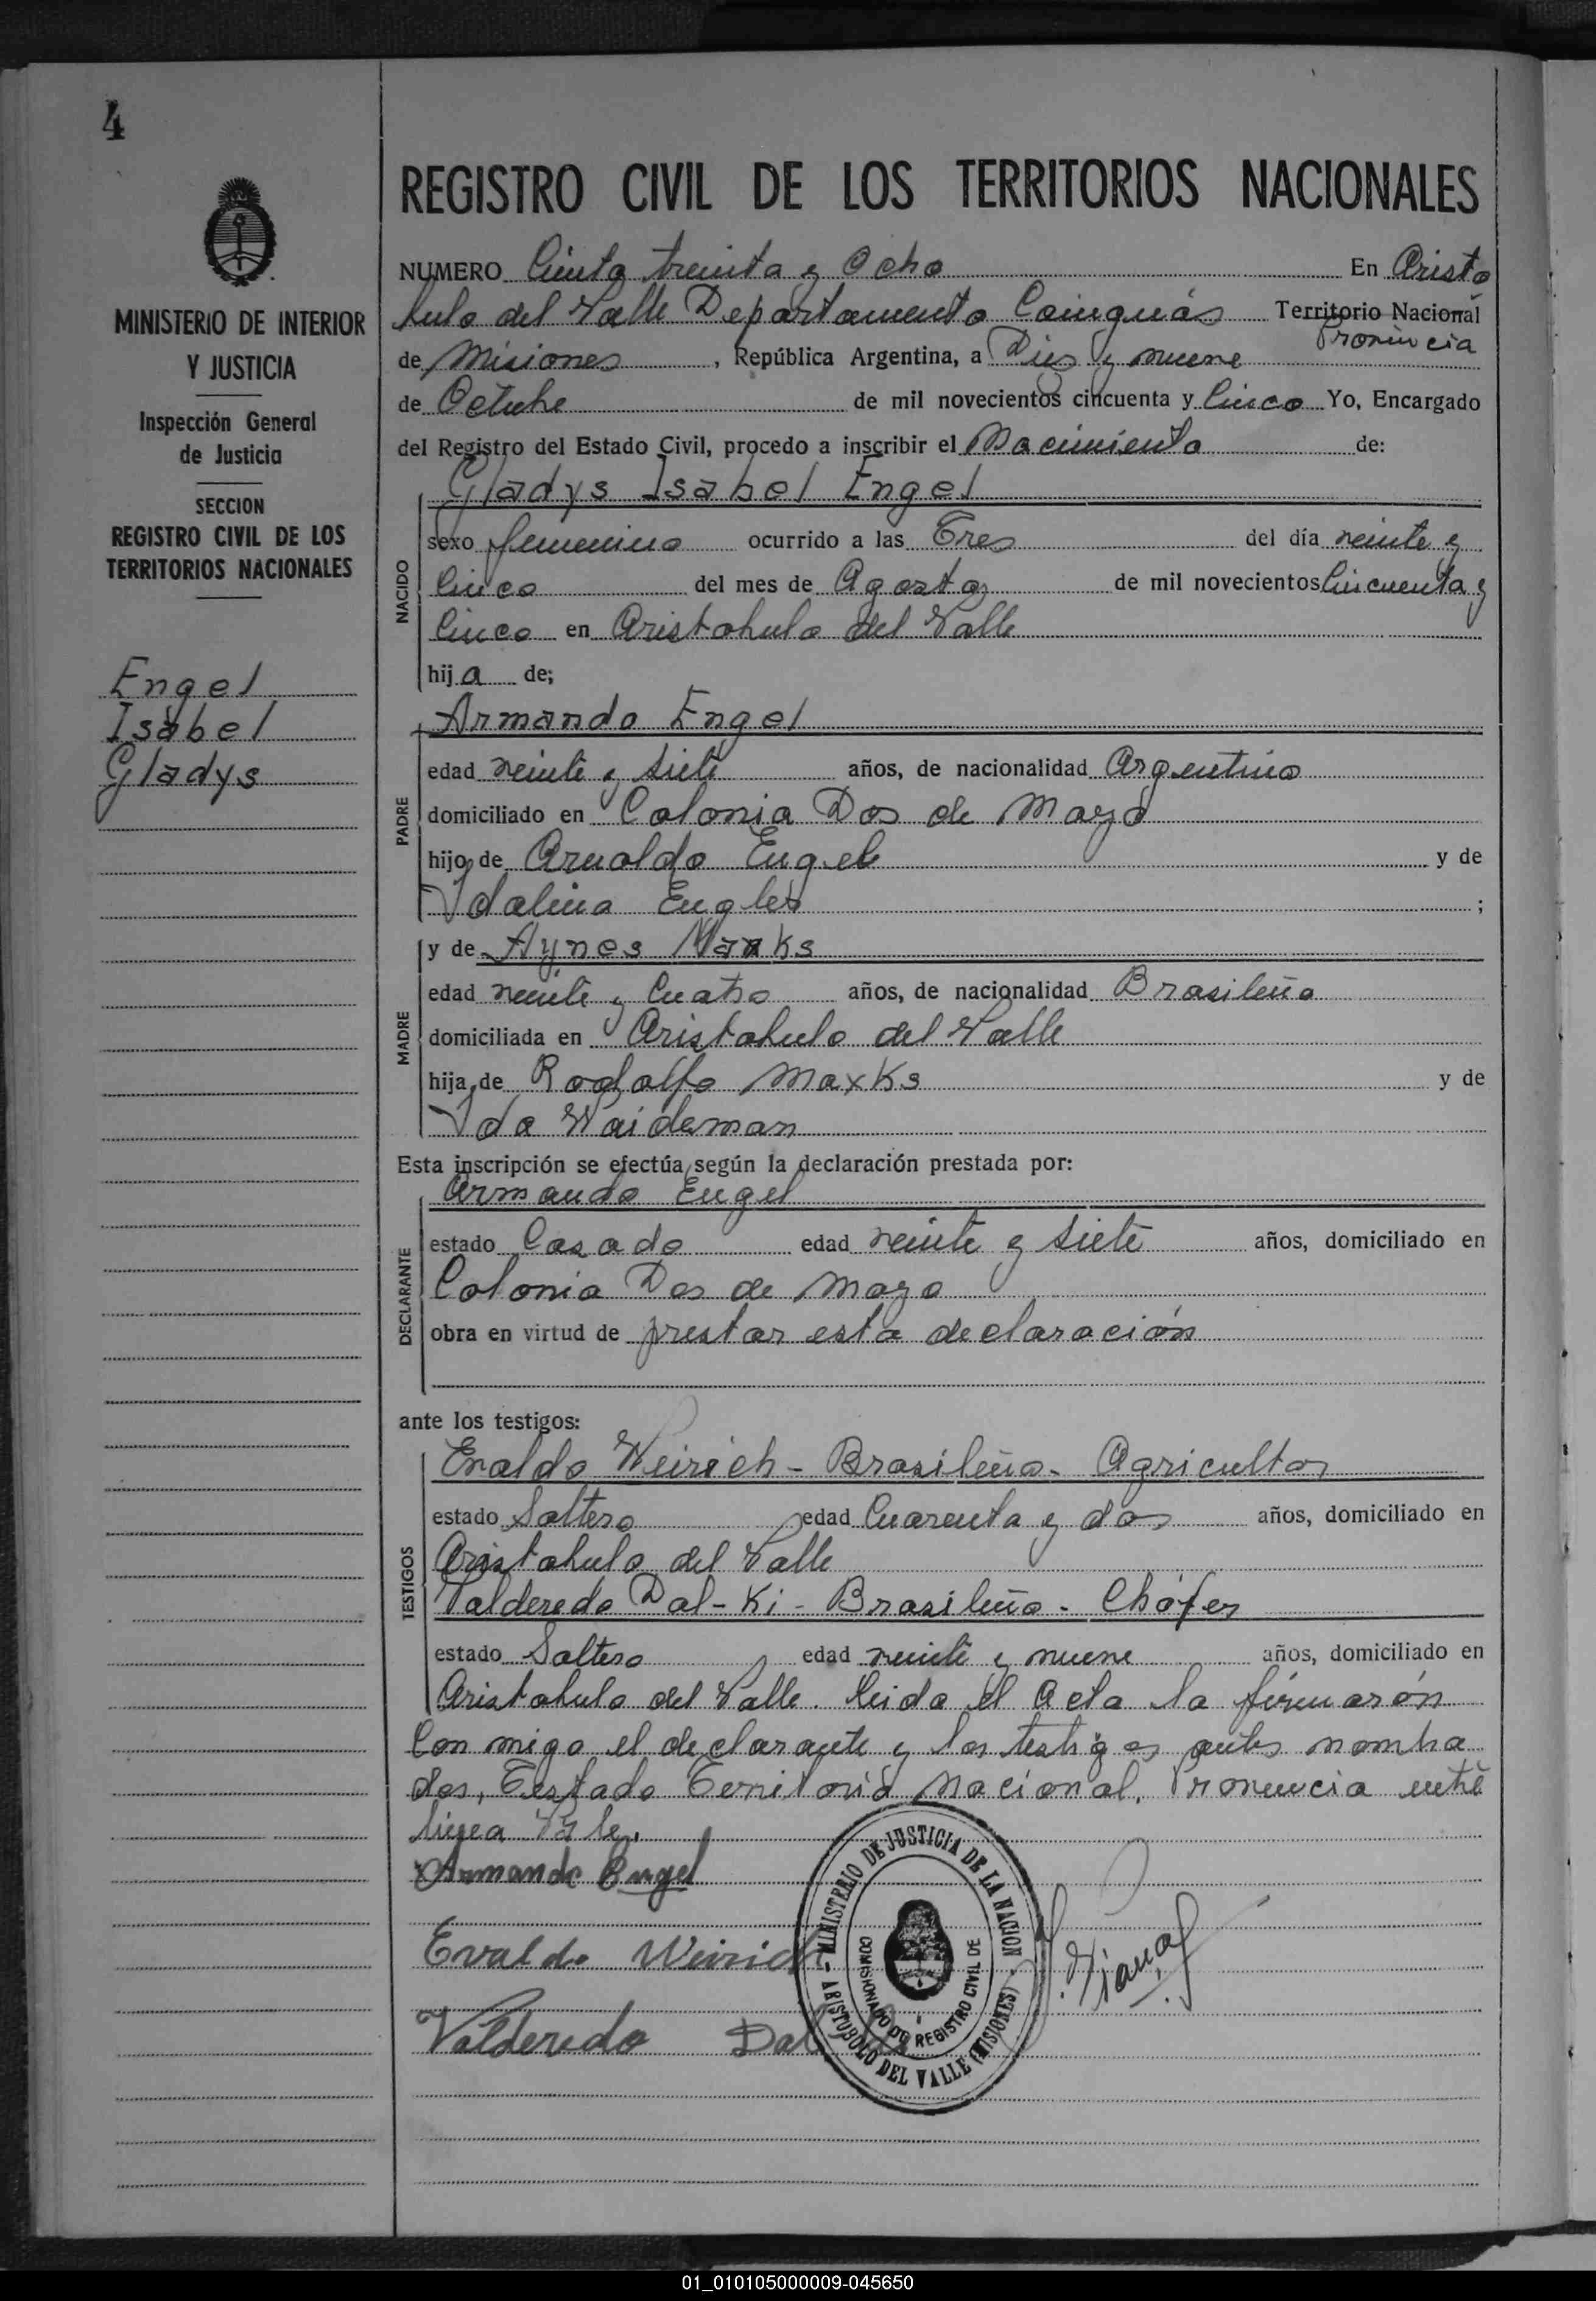 4
REGISTRO CIVIL DE LOS TERRITORIOS NACIONALES
MINISTERIO DE INTERIOR
Y JUSTICIA
Inspección General
de Justicia
SECCION
REGISTRO CIVIL DE LOS
TERRITORIOS NACIONALES
Engel
Isabel
Gladys
NUMERO Ciento treinta y Ocho En Aristo
bulo del Valle Departamento Cainguás Territorio Nacional
Provincia
de Misiones, República Argentina, a Dies y nueve
de Octubre de mil novecientos cincuenta y Cinco Yo, Encargado
del Registro del Estado Civil, procedo a inscribir el Nacimiento de:
Gladys Isabel Engel
NACIDO
sexo femenino ocurrido a las Tres del día veinte y
Cinco del mes de Agosto de mil novecientos Cincuenta y
Cinco en Aristobulo del Valle
hija de;
Armando Engel
PADRE
edad veinte y siete años, de nacionalidad Argentino
domiciliado en Colonia Dos de Mayo
hijo de Arnoldo Engel y de
Idalina Engler;
y de Aynes Marks
MADRE
edad veinte y Cuatro años, de nacionalidad Brasileña
domiciliada en Aristobulo del Valle
hija de Rodolfo Maxks y de
Ida Waideman
Esta inscripción se efectúa según la declaración prestada por:
Armando Engel
DECLARANTE
estado Casado edad veinte y siete años, domiciliado en
Colonia Dos de Mayo
obra en virtud de prestar esta declaración
ante los testigos:
TESTIGOS
Evaldo Weirich - Brasileño - Agricultor
estado Soltero edad Cuarenta y dos años, domiciliado en
Aristobulo del Valle
Valderedo Dal-Ki - Brasileño - Chófer
estado Soltero edad veinte y nueve años, domiciliado en
Aristobulo del Valle. leida el Acta la firmarón
Con migo el declarante y los testigos antes nombra
dos, Testado Territorio Nacional. Provincia entre
linea Vale.
Armando Engel
Evaldo Weirich
Valderedo Dal
MINISTERIO DE JUSTICIA DE LA NACION
COMISIONADO DO REGISTRO CIVIL DE
ARISTOBOLO DEL VALLE (MISIONES)
01_010105000009-045650